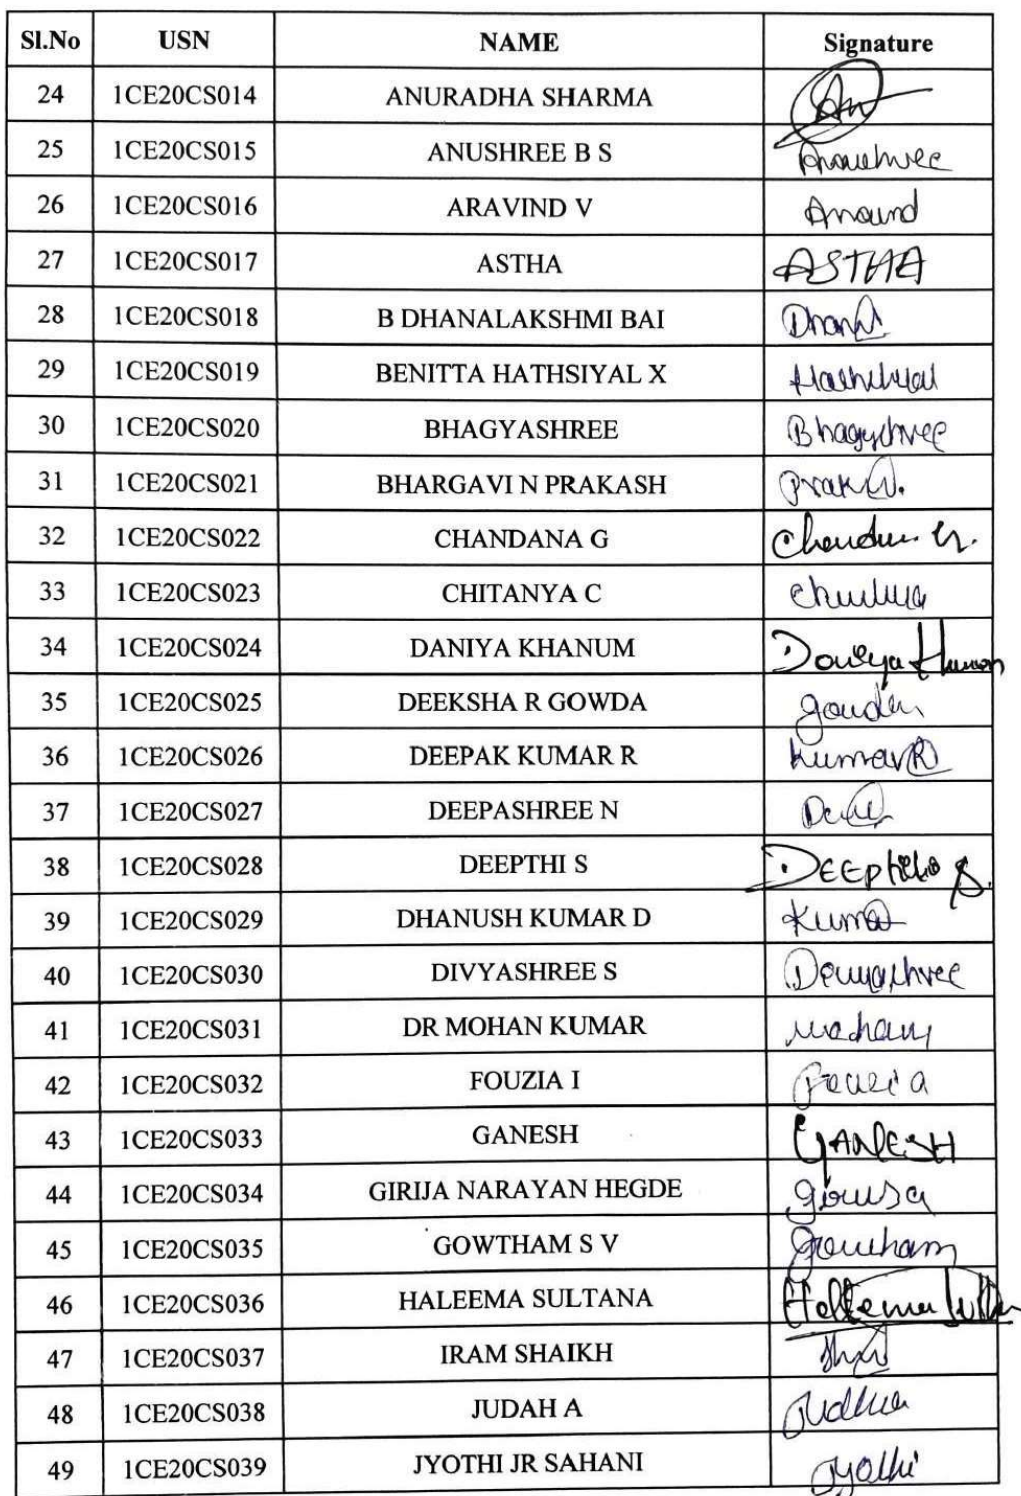 Sl.No USN NAME Signature
24 1CE20CS014 ANURADHA SHARMA An
25 1CE20CS015 ANUSHREE B S
26 1CE20CS016 ARAVIND V
27 1CE20CS017 ASTHA ASTHA
28 1CE20CS018 B DHANALAKSHMI BAI
29 1CE20CS019 BENITTA HATHSIYAL X
30 1CE20CS020 BHAGYASHREE
31 1CE20CS021 BHARGAVI N PRAKASH
32 1CE20CS022 CHANDANA G
33 1CE20CS023 CHITANYA C
34 1CE20CS024 DANIYA KHANUM
35 1CE20CS025 DEEKSHA R GOWDA
36 1CE20CS026 DEEPAK KUMAR R Kumar R
37 1CE20CS027 DEEPASHREE N
38 1CE20CS028 DEEPTHI S
39 1CE20CS029 DHANUSH KUMAR D
40 1CE20CS030 DIVYASHREE S
41 1CE20CS031 DR MOHAN KUMAR
42 1CE20CS032 FOUZIA I
43 1CE20CS033 GANESH GANESH
44 1CE20CS034 GIRIJA NARAYAN HEGDE
45 1CE20CS035 GOWTHAM S V
46 1CE20CS036 HALEEMA SULTANA
47 1CE20CS037 IRAM SHAIKH
48 1CE20CS038 JUDAH A
49 1CE20CS039 JYOTHI JR SAHANI Jyothi